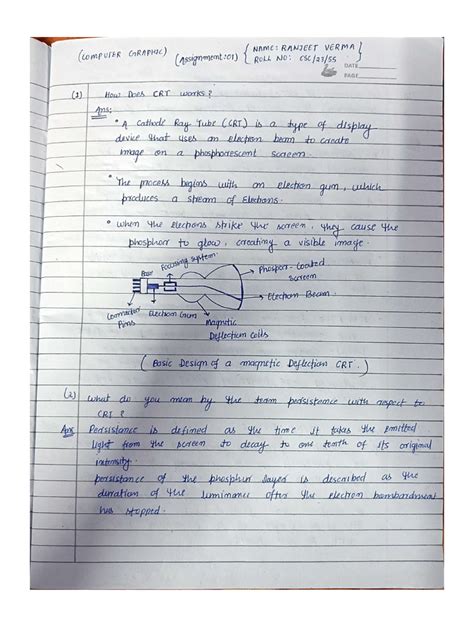 (COMPUTER GRAPHIC) (Assignment:01) { NAME: RANJEET VERMA }
ROLL NO: CSC/21/55
DATE
PAGE
(1) How Does CRT works?
Ans:
• A Cathode Ray Tube (CRT) is a type of display
device that uses an electron beam to create
image on a phosphorescent screen.
• The process begins with an electron gun, which
produces a stream of Electrons.
• When the electrons strike the screen, they cause the
phosphor to glow, creating a visible image.
Base
Focusing System
Phospor-Coated
Screen
Electron Beam
Connector
Pins
Electron Gun
Magnetic
Deflection Coils
(Basic Design of a magnetic Deflection CRT.)
(2) What do you mean by the term persistance with respect to
CRT?
Ans Persistance is defined as the time it takes the emitted
light from the screen to decay to one tenth of its original
intensity.
persistance of the phosphur layer is described as the
duration of the luminance after the electron bombardment
has stopped.